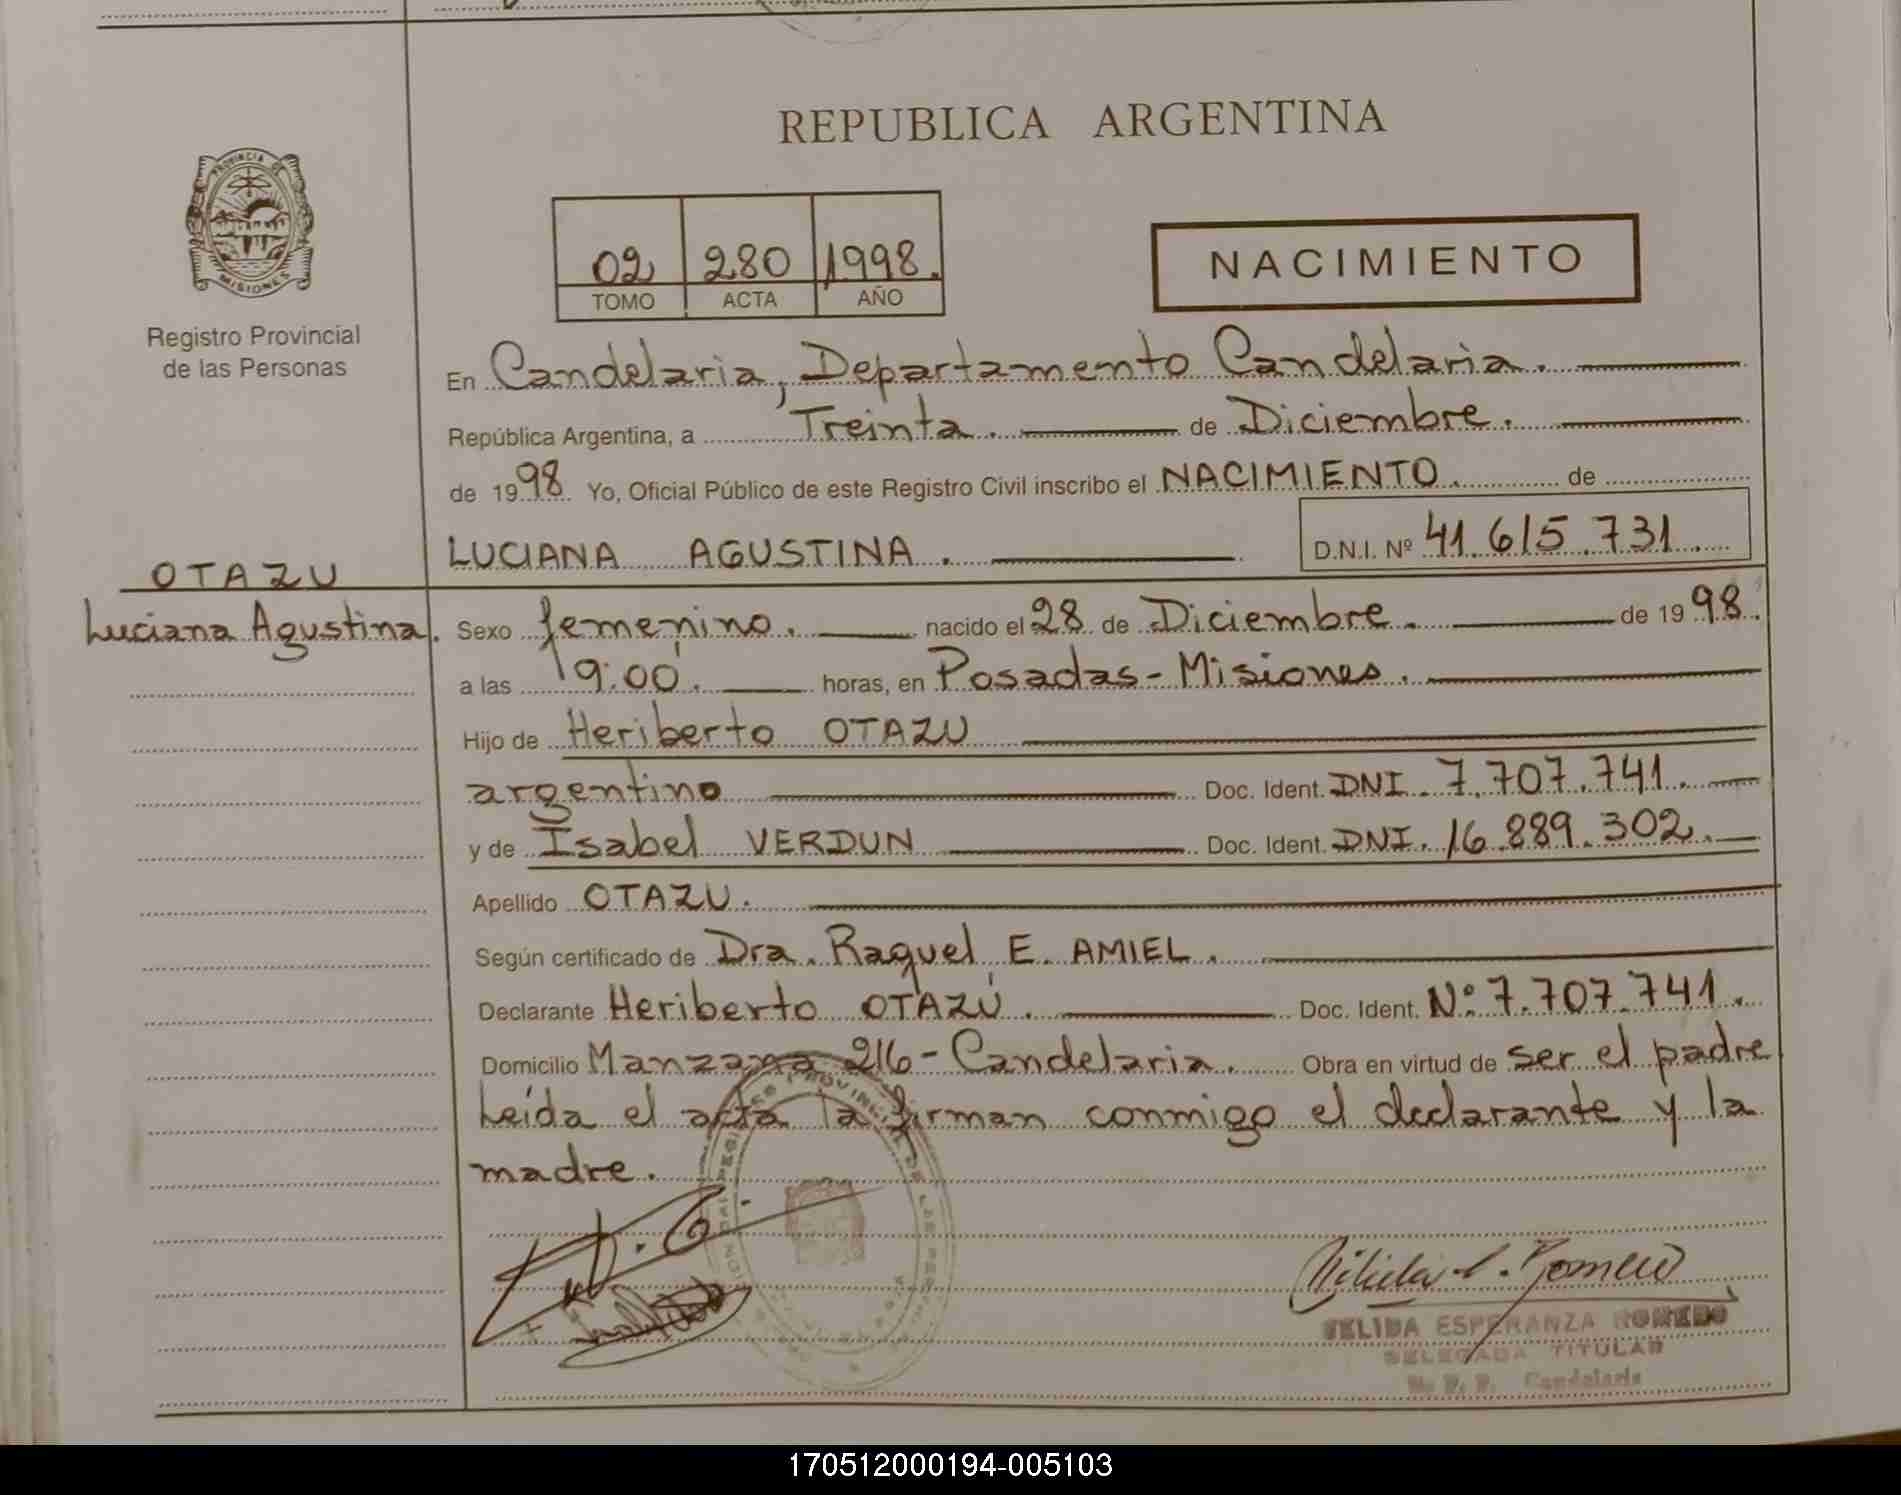 REPUBLICA ARGENTINA
PROVINCIA DE MISIONES
Registro Provincial
de las Personas
02 280 1998.
TOMO ACTA AÑO
NACIMIENTO
En Candelaria, Departamento Candelaria.
República Argentina, a Treinta. de Diciembre.
de 1998 Yo, Oficial Público de este Registro Civil inscribo el NACIMIENTO. de
LUCIANA AGUSTINA. D.N.I. Nº 41.615.731.
OTAZU
Luciana Agustina.
Sexo femenino. nacido el 28 de Diciembre. de 1998.
a las 19:00. horas, en Posadas-Misiones.
Hijo de Heriberto OTAZU
argentino Doc. Ident. DNI. 7.707.741.
y de Isabel VERDUN Doc. Ident. DNI. 16.889.302.
Apellido OTAZU.
Según certificado de Dra. Raquel E. AMIEL.
Declarante Heriberto OTAZÚ. Doc. Ident. Nº 7.707.741.
Domicilio Manzana 216-Candelaria. Obra en virtud de ser el padre
Leída el acta la firman conmigo el declarante y la
madre.
ESPERANZA ROMERO
TITULAR
Candelaria
170512000194-005103